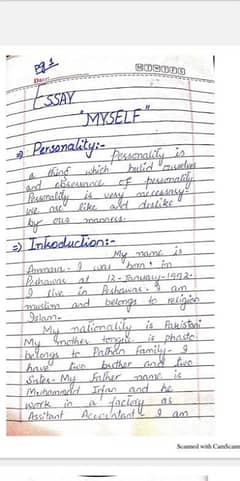 pg 1
Date:
M T W T F S S
ESSAY
"MYSELF"
⇒ Personality:-
Personality is
a thing which build ourselves
and observance of personality
Personality is very necessary
we are like and deslike
by our manners.
⇒) Introduction:-
My name is
Ammara. I was born in
Peshawar at 12-January-1992.
I live in Peshawar. I am
muslim and belongs to religion
Islam.
My nationality is Pakistani
My mother tongue is phasto
belongs to Pathan Family. I
have two brother and two
Sister. My Father name is
Muhammad Irfan and he
work in a factory as
Assitant Accountant. I am
Scanned with CamScann